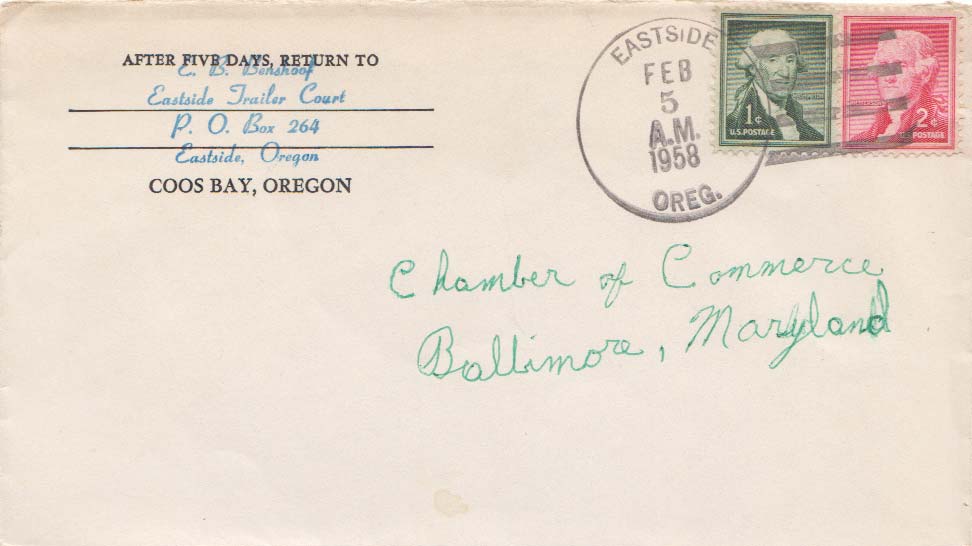 AFTER FIVE DAYS, RETURN TO
E. B. Benshoof
Eastside Trailer Court
P. O. Box 264
Eastside, Oregon
COOS BAY, OREGON
EASTSIDE
FEB
5
A.M.
1958
OREG.
1¢
U.S. POSTAGE
2¢
U.S. POSTAGE
Chamber of Commerce
Baltimore, Maryland